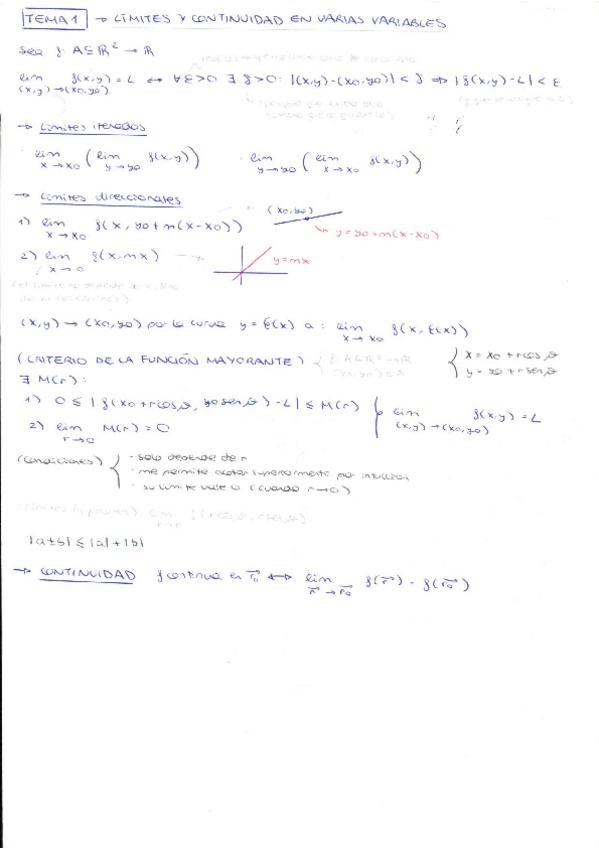 TEMA 1 → LÍMITES Y CONTINUIDAD EN VARIAS VARIABLES
Sea f: A⊆ℝ² → ℝ
lim f(x,y) = L ↔ ∀ε>0 ∃ δ>0: |(x,y)-(x0,y0)| < δ ⇒ |f(x,y)-L| < ε
(x,y)→(x0,y0)
→ Límites iterados
· lim (lim f(x,y)) · lim (lim f(x,y))
x→x0 y→y0 y→y0 x→x0
→ Límites direccionales
1) lim f(x, y0+m(x-x0)) (x0,y0) y=y0+m(x-x0)
x→x0
2) lim f(x,mx) → y=mx
x→0
(x,y)→(x0,y0) por la curva y=φ(x) a: lim f(x,φ(x))
x→x0
(CRITERIO DE LA FUNCIÓN MAYORANTE) { x = x0 + r cos θ
y = y0 + r sen θ
∃ M(r):
1) 0 ≤ |f(x0+r cos θ, y0 sen θ) - L| ≤ M(r) } lim f(x,y) = L
(x,y)→(x0,y0)
2) lim M(r) = 0
r→0
(Condiciones) { · solo depende de r
· me permite acotar superiormente por intuición
· su límite vale 0 (cuando r→0)
|a±b| ≤ |a|+|b|
→ CONTINUIDAD f continua en r⃗0 ↔ lim f(r⃗) = f(r⃗0)
r⃗→r⃗0